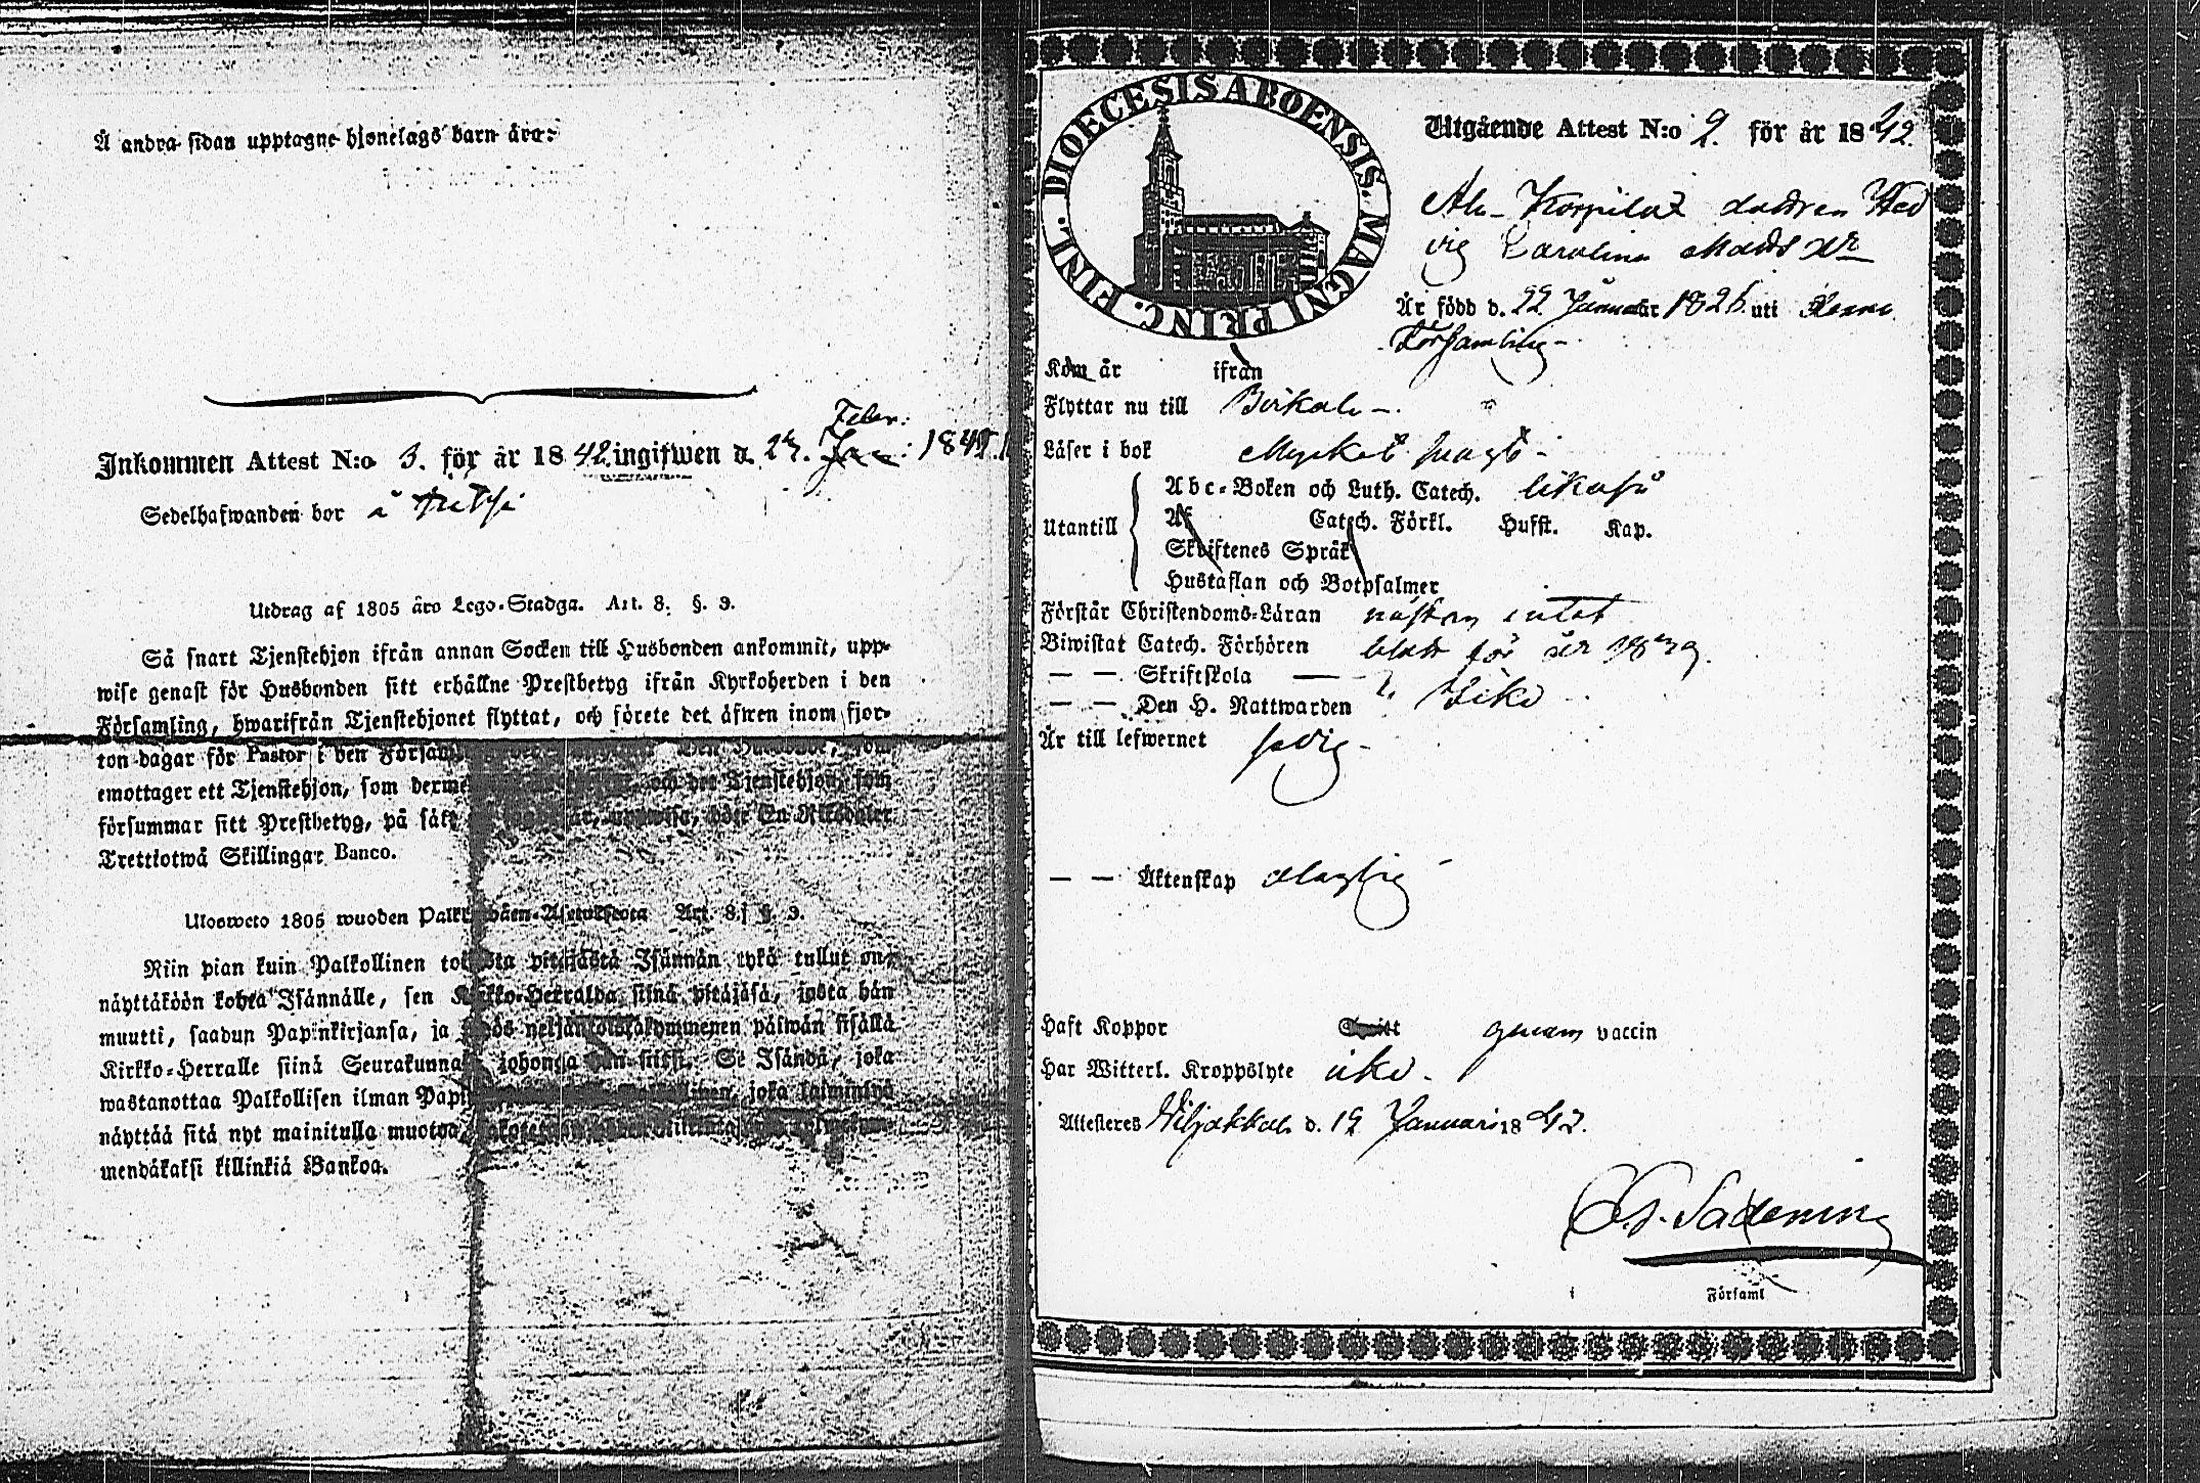 Å andra sidan upptagne hjonelags barn äro:
Inkommen Attest N:o 3. för år 1842 ingifwen d. 27. Febr: 1842.
Sedelhafwanden bor i
Utdrag af 1805 års Lego-Stadga. Art. 8. §. 9.
Så snart Tjenstehjon ifrån annan Socken till Husbonden ankommit, upp-
wise genast för Husbonden sitt erhållne Prestbetyg ifrån Kyrkoherden i den
Församling, hwarifrån Tjenstehjonet flyttat, och förete det äfwen inom fjor-
ton dagar för Pastor i den Försam
emottager ett Tjenstehjon, som derme och det Tjenstehjon, som
försummar sitt Prestbetyg, på sätt uppwisa, böte En Riksdaler
Trettiotwå Skillingar Banco.
Ulosweto 1805 wuoden Palk Asetuksesta Art. 8. §. 9.
Niin pian kuin Palkollinen toisesta pitäjästä Isännän tykö tullut on,
näyttäköön kohta Isännälle, sen Kirkko-Herralda siinä pitäjäsä, josta hän
muutti, saadun Papinkirjansa, ja myös neljäntoistakymmenen päiwän sisällä
Kirkko-Herralle siinä Seurakunnasa johonga hän siirsi. Se Isändä, joka
wastanottaa Palkollisen ilman Papin joka laiminlyö
näyttää sitä nyt mainitulla muotoa
mendäkaksi killinkiä Bankoa.
DIOECESIS ABOENSIS. MAGNI PRINC. FINL.
Utgående Attest N:o 2. för år 1842.
Ala-Korpilax dottren Hed
vig Carolina Matts dr
Är född d. 22 Januar 1826 uti denna
Församling
Kom år ifrån
Flyttar nu till Birkala
Läser i bok Mycket svagt
Utantill
Abc-Boken och Luth. Catech. likaså
Af Catech. Förkl. Hufst. Kap.
Skriftenes Språk
Hustaflan och Botpsalmer
Förstår Christendoms-Läran nästan intet
Biwistat Catech. Förhören blott för år 1839.
— — Skriftskola
— — Den H. Nattwarden Icke
Är till lefwernet
— — Äktenskap
Haft Koppor genom vaccin
Har Witterl. Kroppslyte icke
Attesteres Wiljakkala d. 19 Januari 1842.
Församl